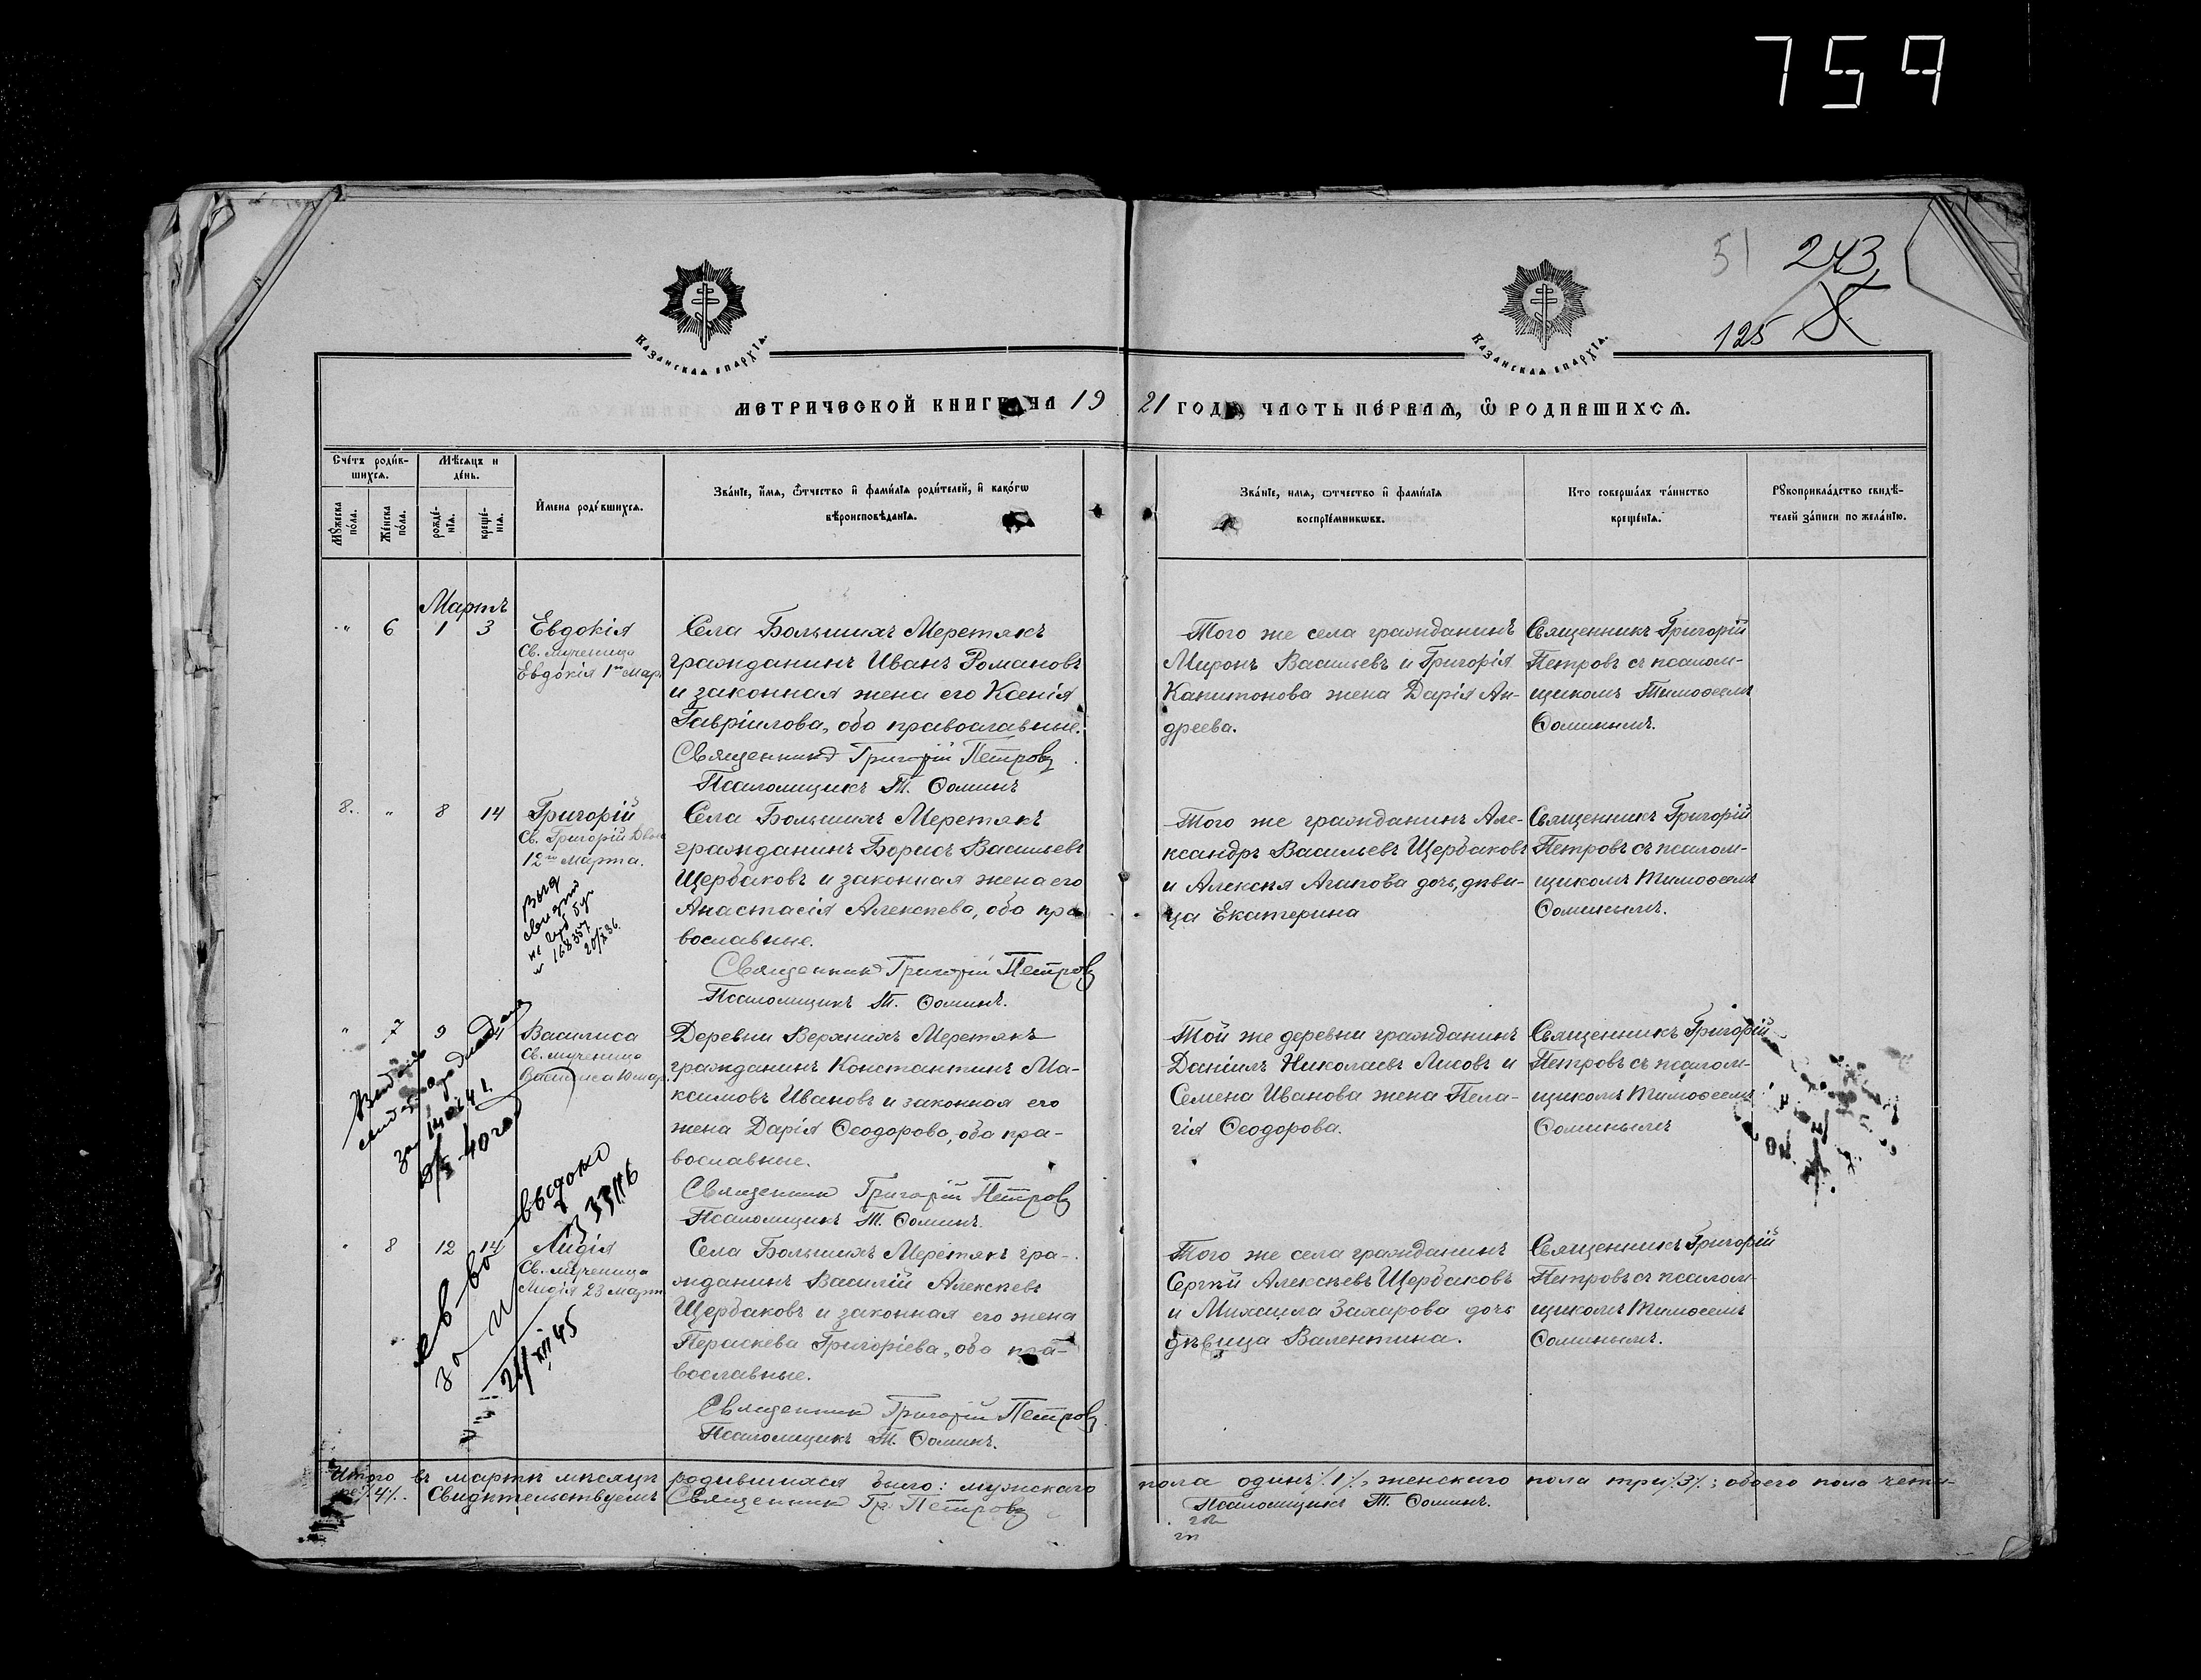 759
51 243
125
Казанская епархїа.
Казанская епархїа.
МЕТРИЧЕСКОЙ КНИГИ НА 19 21 ГОДЪ, ЧАСТЬ ПЕРВАЯ, Ѽ РОДИВШИХСЯ.
Счетъ родив-
шихся.
Мѣсяцъ и
день.
Мужеска
пола.
Женска
пола.
рожде-
нїя.
креще-
нїя.
Имена родившихся.
Званїе, имя, отчество и фамилїя родителей, и какогѡ
вѣроисповѣданїя.
Званїе, имя, отчество и фамилїя
воспрїемникѡвъ.
Кто совершалъ таинство
крещенїя.
Рукоприкладство свидѣ-
телей записи по желанїю.
Мартъ
" 6 1 3 Евдокія
Св. мученица
Евдокія 1го Мар.
Села Большихъ Меретякъ
гражданинъ Иванъ Романовъ
и законная жена его Ксенія
Гавріилова, оба православные.
Священникъ Григорій Петровъ
Псаломщикъ Т. Ѳоминъ
Того же села гражданинъ
Миронъ Васильевъ и Григорія
Капитонова жена Дарія Ан-
дреева.
Священникъ Григорій
Петровъ съ псалом-
щикомъ Тимоѳеемъ
Ѳоминымъ.
8. " 8 14 Григорій
Св. Григорій Двое
12го Марта.
168357
20/X 36.
Села Большихъ Меретякъ
гражданинъ Борисъ Васильевъ
Щербаковъ и законная жена его
Анастасія Алексѣева, оба пра
вославные.
Священникъ Григорій Петровъ
Псаломщикъ Т. Ѳоминъ.
Того же гражданинъ Але-
ксандръ Васильевъ Щербаковъ
и Алексѣя Агапова дочь, дѣви-
ца Екатерина
Священникъ Григорій
Петровъ съ псалом-
щикомъ Тимоѳеемъ
Ѳоминымъ.
" 7 9 Василиса
Св. мученица
Василиса 10 мар.
Деревни Верхнихъ Меретякъ
гражданинъ Константинъ Ма-
ксимовъ Ивановъ и законная его
жена Дарія Ѳеодорова, оба пра-
вославные.
Священникъ Григорій Петровъ
Псаломщикъ Т. Ѳоминъ.
Той же деревни гражданинъ
Даніилъ Николаевъ Лисовъ и
Семена Иванова жена Пела-
гія Ѳеодорова.
Священникъ Григорій
Петровъ съ псалом-
щикомъ Тимоѳеемъ
Ѳоминымъ
" 8 12 14 Лидія
Св. мученица
Лидія 23 Март.
21/XII 45
Села Большихъ Меретякъ гра-
жданинъ Василій Алексѣевъ
Щербаковъ и законная его жена
Параскева Григоріева, оба пра-
вославные.
Священникъ Григорій Петровъ
Псаломщикъ Т. Ѳоминъ.
Того же села гражданинъ
Сергѣй Алексѣевъ Щербаковъ
и Михаила Захарова дочь
дѣвица Валентина.
Священникъ Григорій
Петровъ съ псалом-
щикомъ Тимоѳеемъ
Ѳоминымъ.
Итого въ мартѣ мѣсяцѣ родившихся было: мужскаго пола одинъ /.1/., женскаго пола три /.3/.; обоего пола четы-
ре /.4/. Свидѣтельствуемъ Священникъ Гр. Петровъ Псаломщикъ Т. Ѳоминъ.